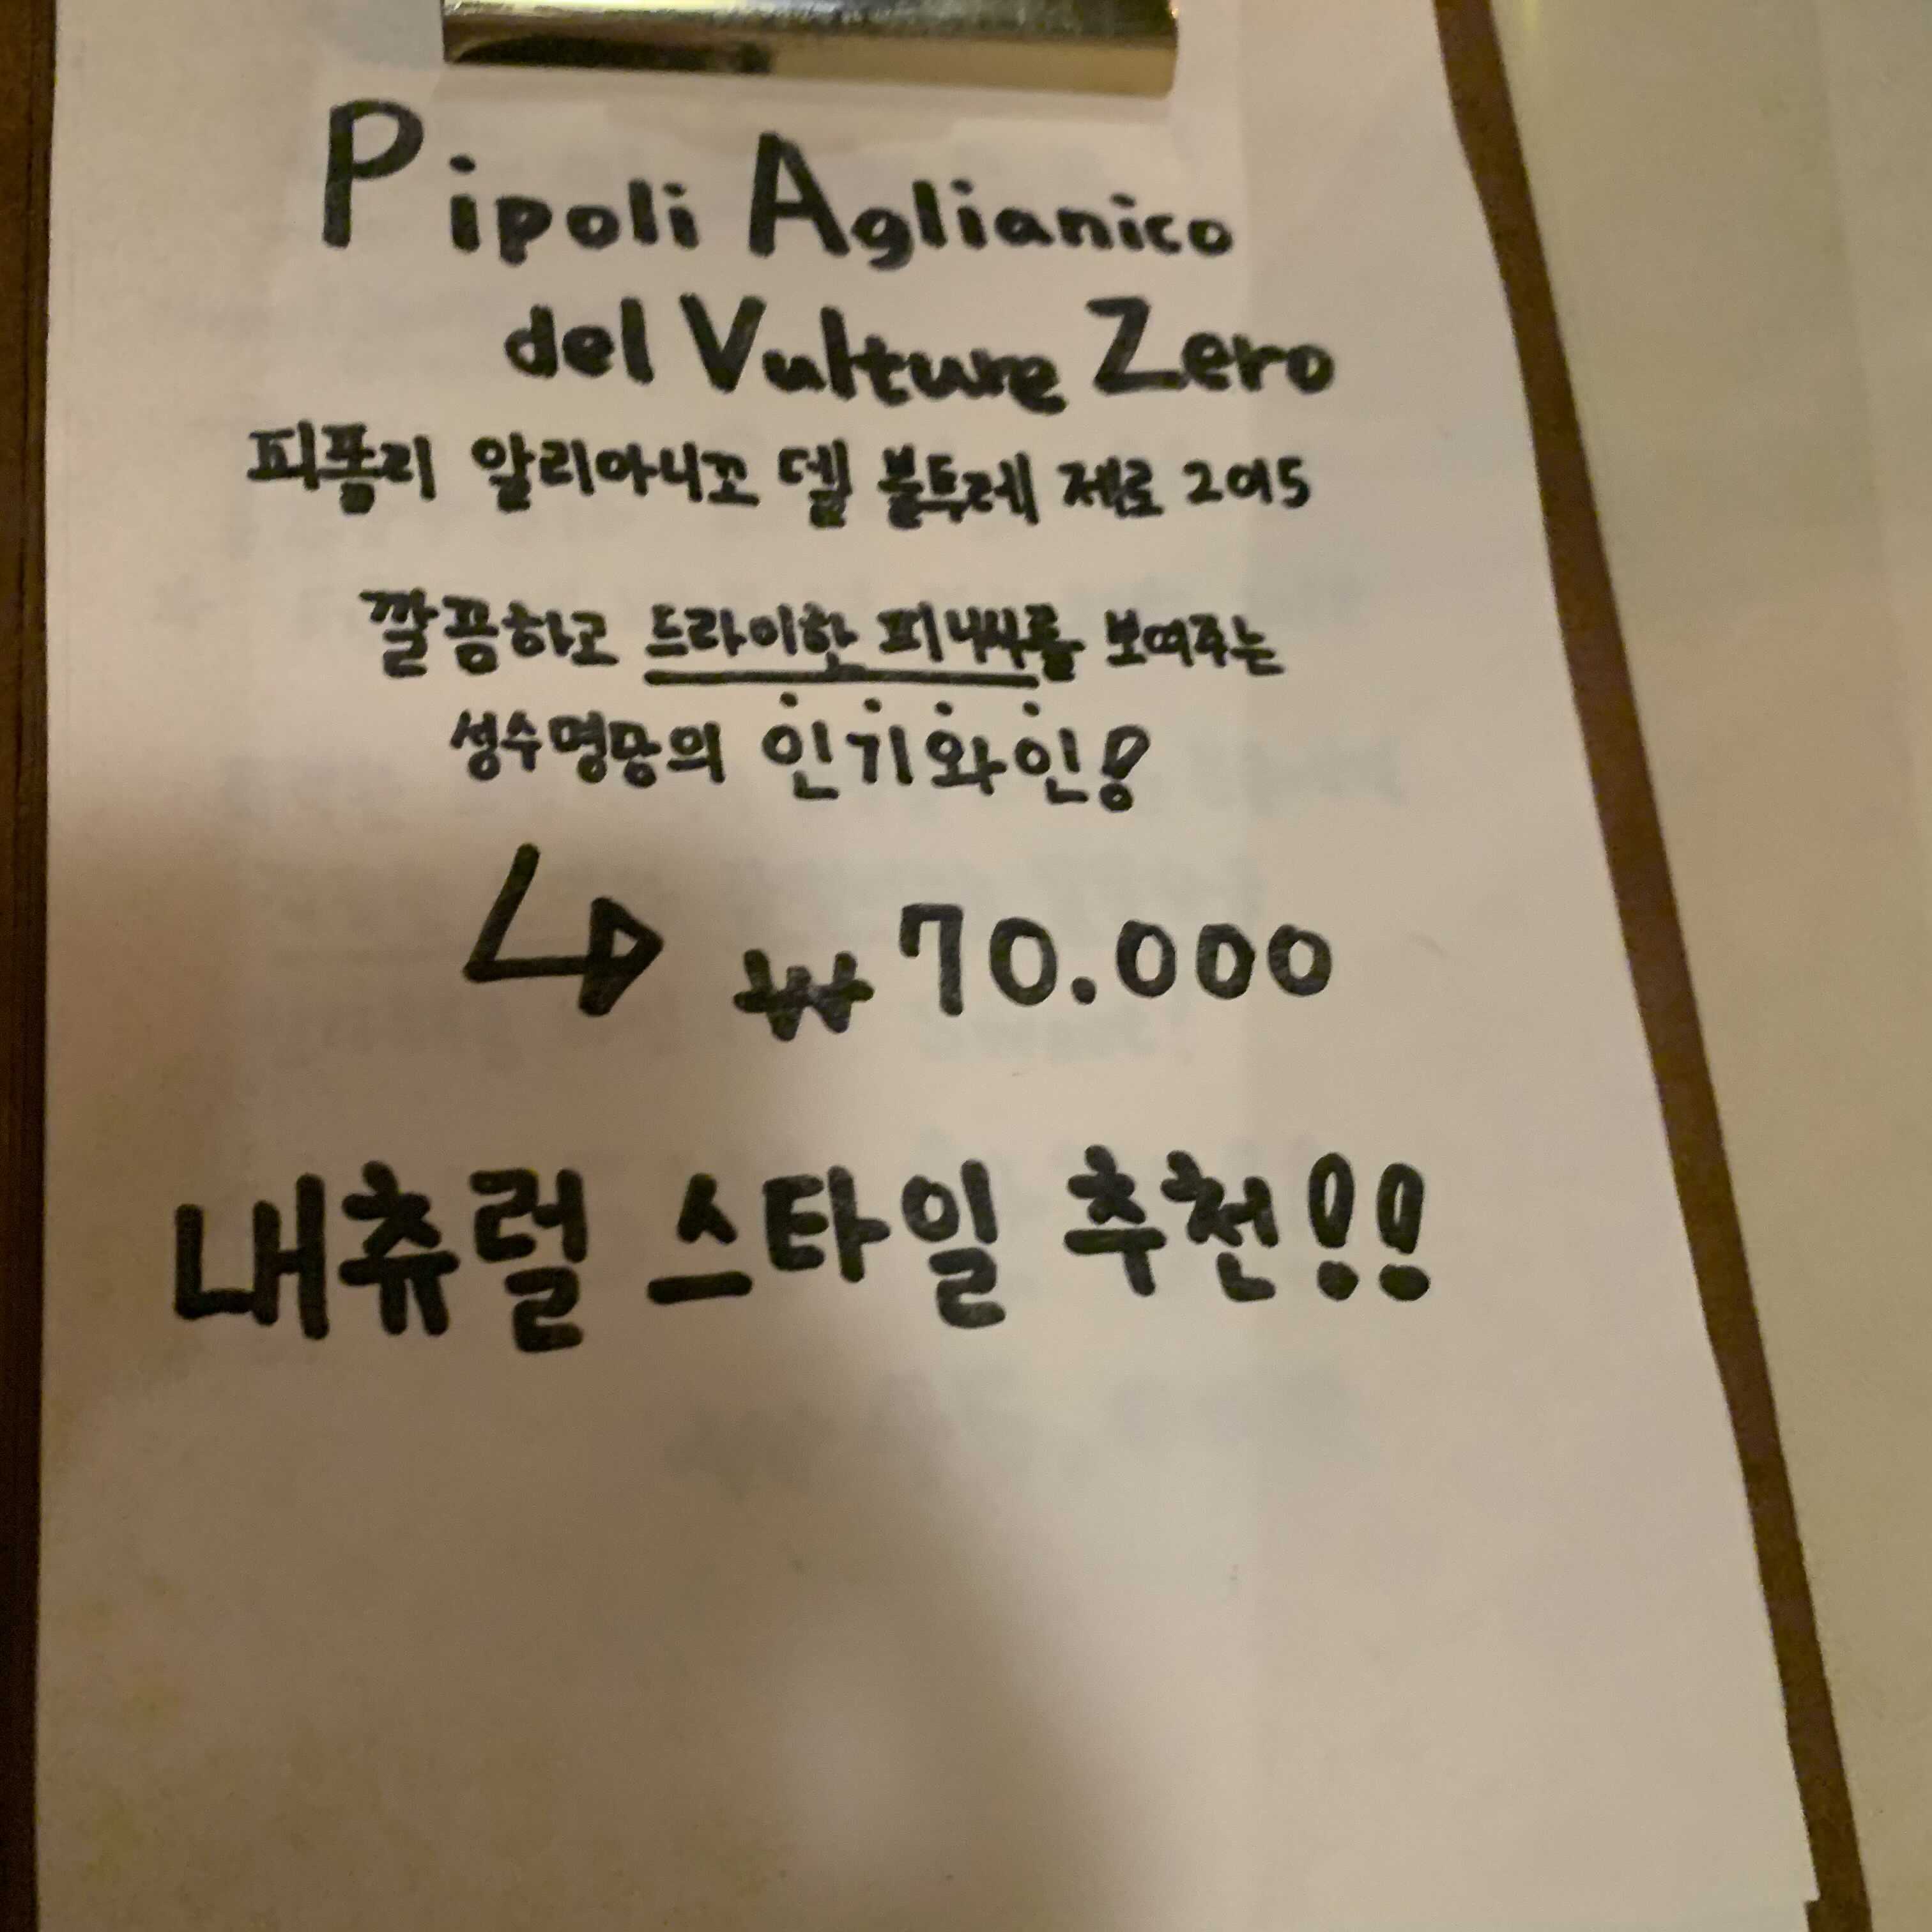 Pipoli Aglianico
del Vulture Zero
피폴리 알리아니꼬 델 불투레 제로 2015
깔끔하고 드라이한 피니쉬를 보여주는
성수명당의 인기와인!
↳ ₩70.000
내츄럴 스타일 추천!!